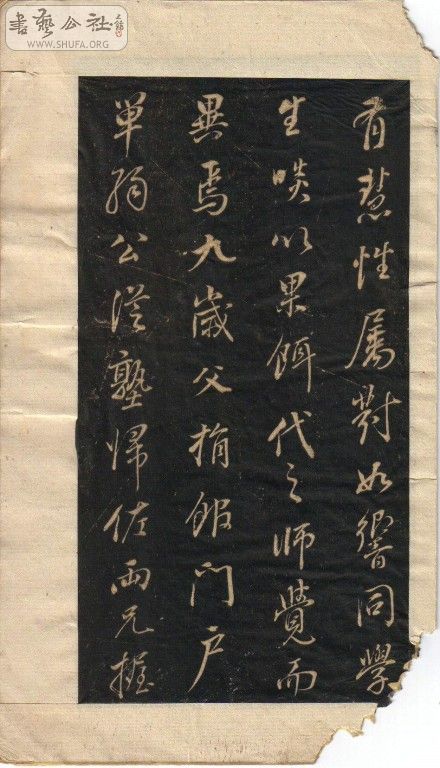 書藝公社
WWW.SHUFA.ORG
有慧性屬對如響同學
生啖以果餌代之師覺而
異焉九歲父捐館門戶
单弱公從塾歸佐兩兄握